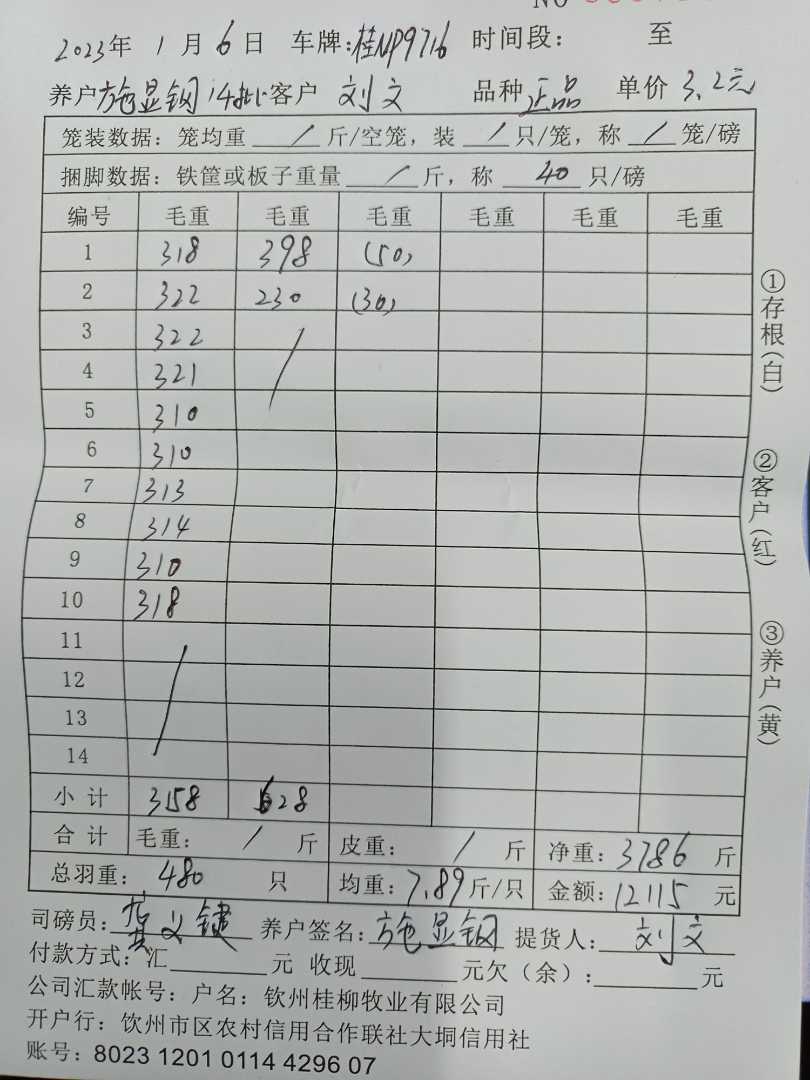 NO
2023年 1 月 6 日 车牌:桂NP9716 时间段: 至
养户 施显钢 14批 客户 刘文 品种 正品 单价 3.2元
笼装数据: 笼均重 / 斤/空笼, 装 / 只/笼, 称 / 笼/磅
捆脚数据: 铁筐或板子重量 / 斤, 称 40 只/磅
编号 毛重 毛重 毛重 毛重 毛重 毛重
1 318 398 (50)
2 322 230 (30)
3 322 /
4 321
5 310
6 310
7 313
8 314
9 310
10 318
11 /
12
13
14
小计 3158 628
合计 毛重: / 斤 皮重: / 斤 净重: 3786 斤
总羽重: 480 只 均重: 7.89 斤/只 金额: 12115 元
司磅员: 龚义键 养户签名: 施显钢 提货人: 刘文
付款方式: 汇 元 收现 元欠(余): 元
公司汇款帐号: 户名: 钦州桂柳牧业有限公司
开户行: 钦州市区农村信用合作联社大垌信用社
账号: 8023 1201 0114 4296 07
①存根(白)
②客户(红)
③养户(黄)